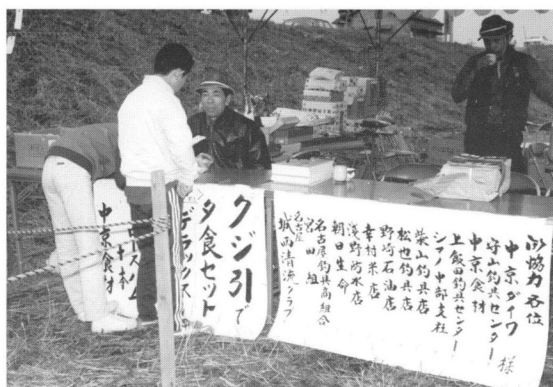 御協力各位
中京ダイワ 様
守山釣具センター
中京食材
上飯田釣具センター
シマノ中部支社
柴山釣具店
松也釣具店
野崎石油店
幸村米店
浅野防水店
朝日生命
名古屋釣具商組合
宮田組
名古屋
城西清流クラブ
クジ引で
夕食セット
デラックス
十本
中京食材